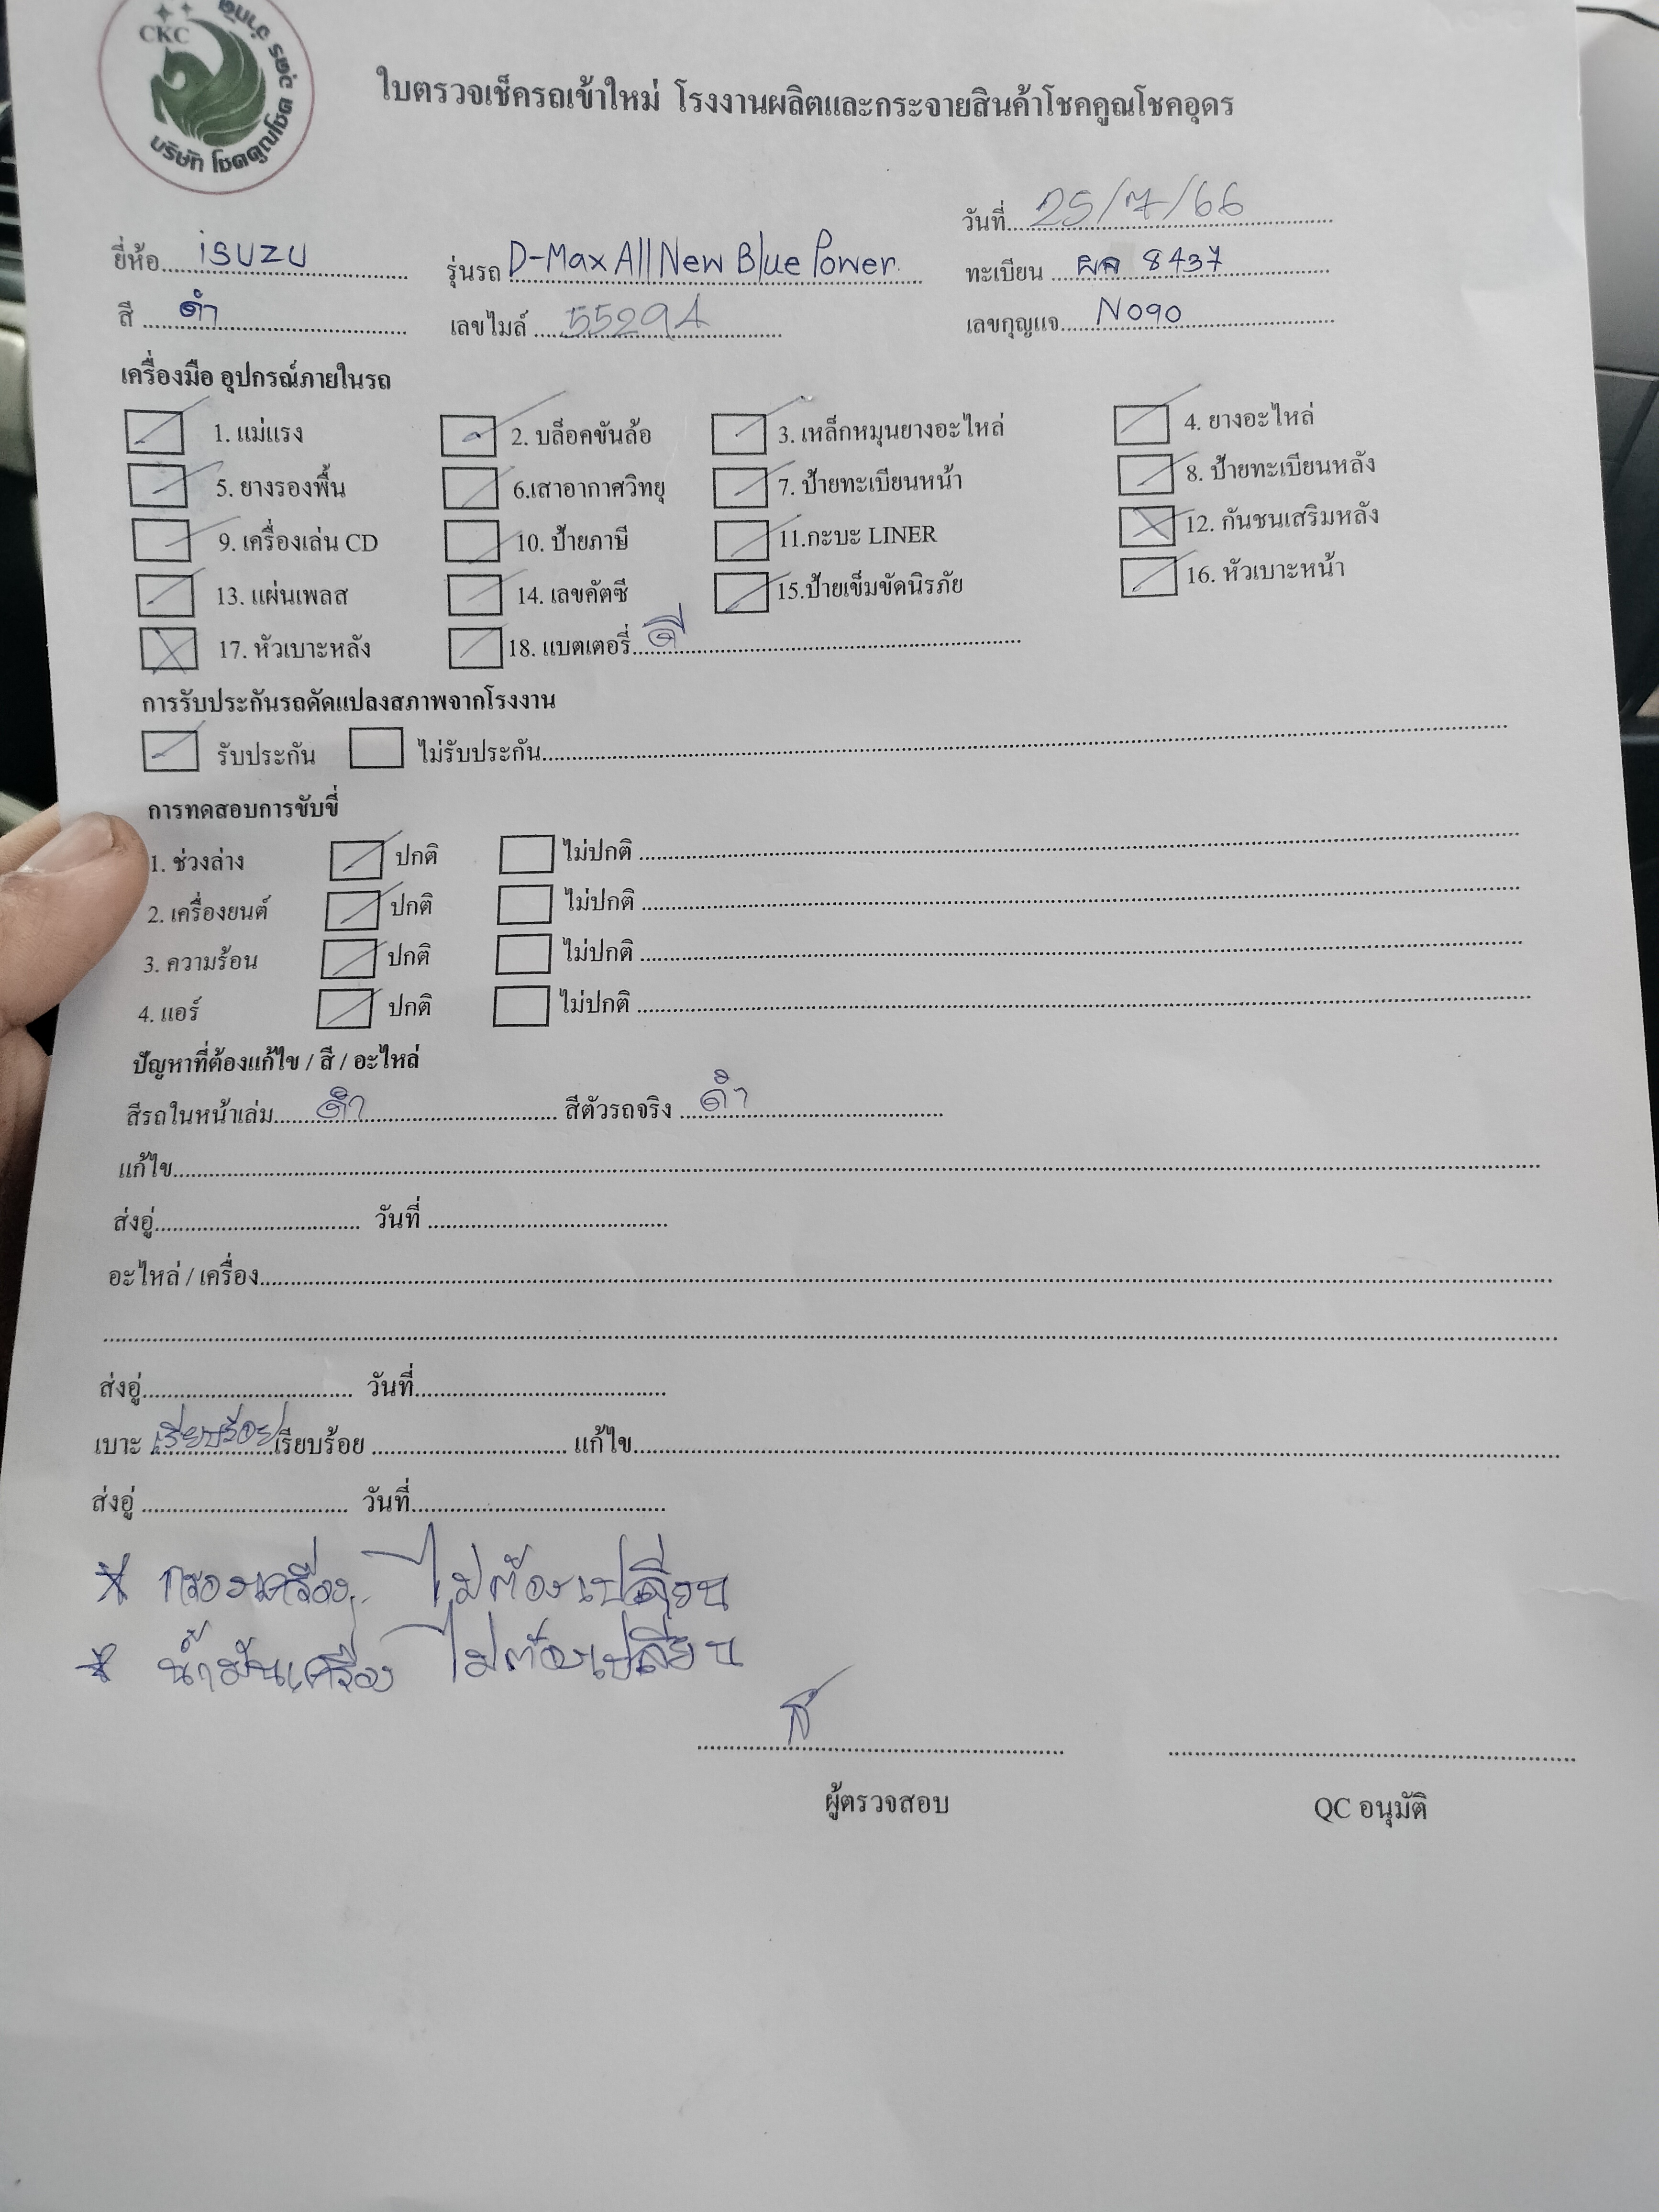 CKC
บริษัท โชคคูณโชค อุดร จำกัด
ใบตรวจเช็ครถเข้าใหม่ โรงงานผลิตและกระจายสินค้าโชคคูณโชคอุดร
วันที่ 25/7/66
ยี่ห้อ isuzu รุ่นรถ D-Max All New Blue Power ทะเบียน 8437
สี ดำ เลขไมล์ 55294 เลขกุญแจ N090
เครื่องมือ อุปกรณ์ภายในรถ
1. แม่แรง 2. บล็อคขันล้อ 3. เหล็กหมุนยางอะไหล่ 4. ยางอะไหล่
5. ยางรองพื้น 6.เสาอากาศวิทยุ 7. ป้ายทะเบียนหน้า 8. ป้ายทะเบียนหลัง
9. เครื่องเล่น CD 10. ป้ายภาษี 11.กะบะ LINER 12. กันชนเสริมหลัง
13. แผ่นเพลส 14. เลขคัตซี 15.ป้ายเข็มขัดนิรภัย 16. หัวเบาะหน้า
17. หัวเบาะหลัง 18. แบตเตอรี่ ดี
การรับประกันรถดัดแปลงสภาพจากโรงงาน
รับประกัน ไม่รับประกัน
การทดสอบการขับขี่
1. ช่วงล่าง ปกติ ไม่ปกติ
2. เครื่องยนต์ ปกติ ไม่ปกติ
3. ความร้อน ปกติ ไม่ปกติ
4. แอร์ ปกติ ไม่ปกติ
ปัญหาที่ต้องแก้ไข / สี / อะไหล่
สีรถในหน้าเล่ม ดำ สีตัวรถจริง ดำ
แก้ไข
ส่งอู่ วันที่
อะไหล่ / เครื่อง
ส่งอู่ วันที่
เบาะ เรียบร้อย เรียบร้อย แก้ไข
ส่งอู่ วันที่
* กรองเครื่อง ไม่ต้องเปลี่ยน
* น้ำมันเครื่อง ไม่ต้องเปลี่ยน
ผู้ตรวจสอบ QC อนุมัติ